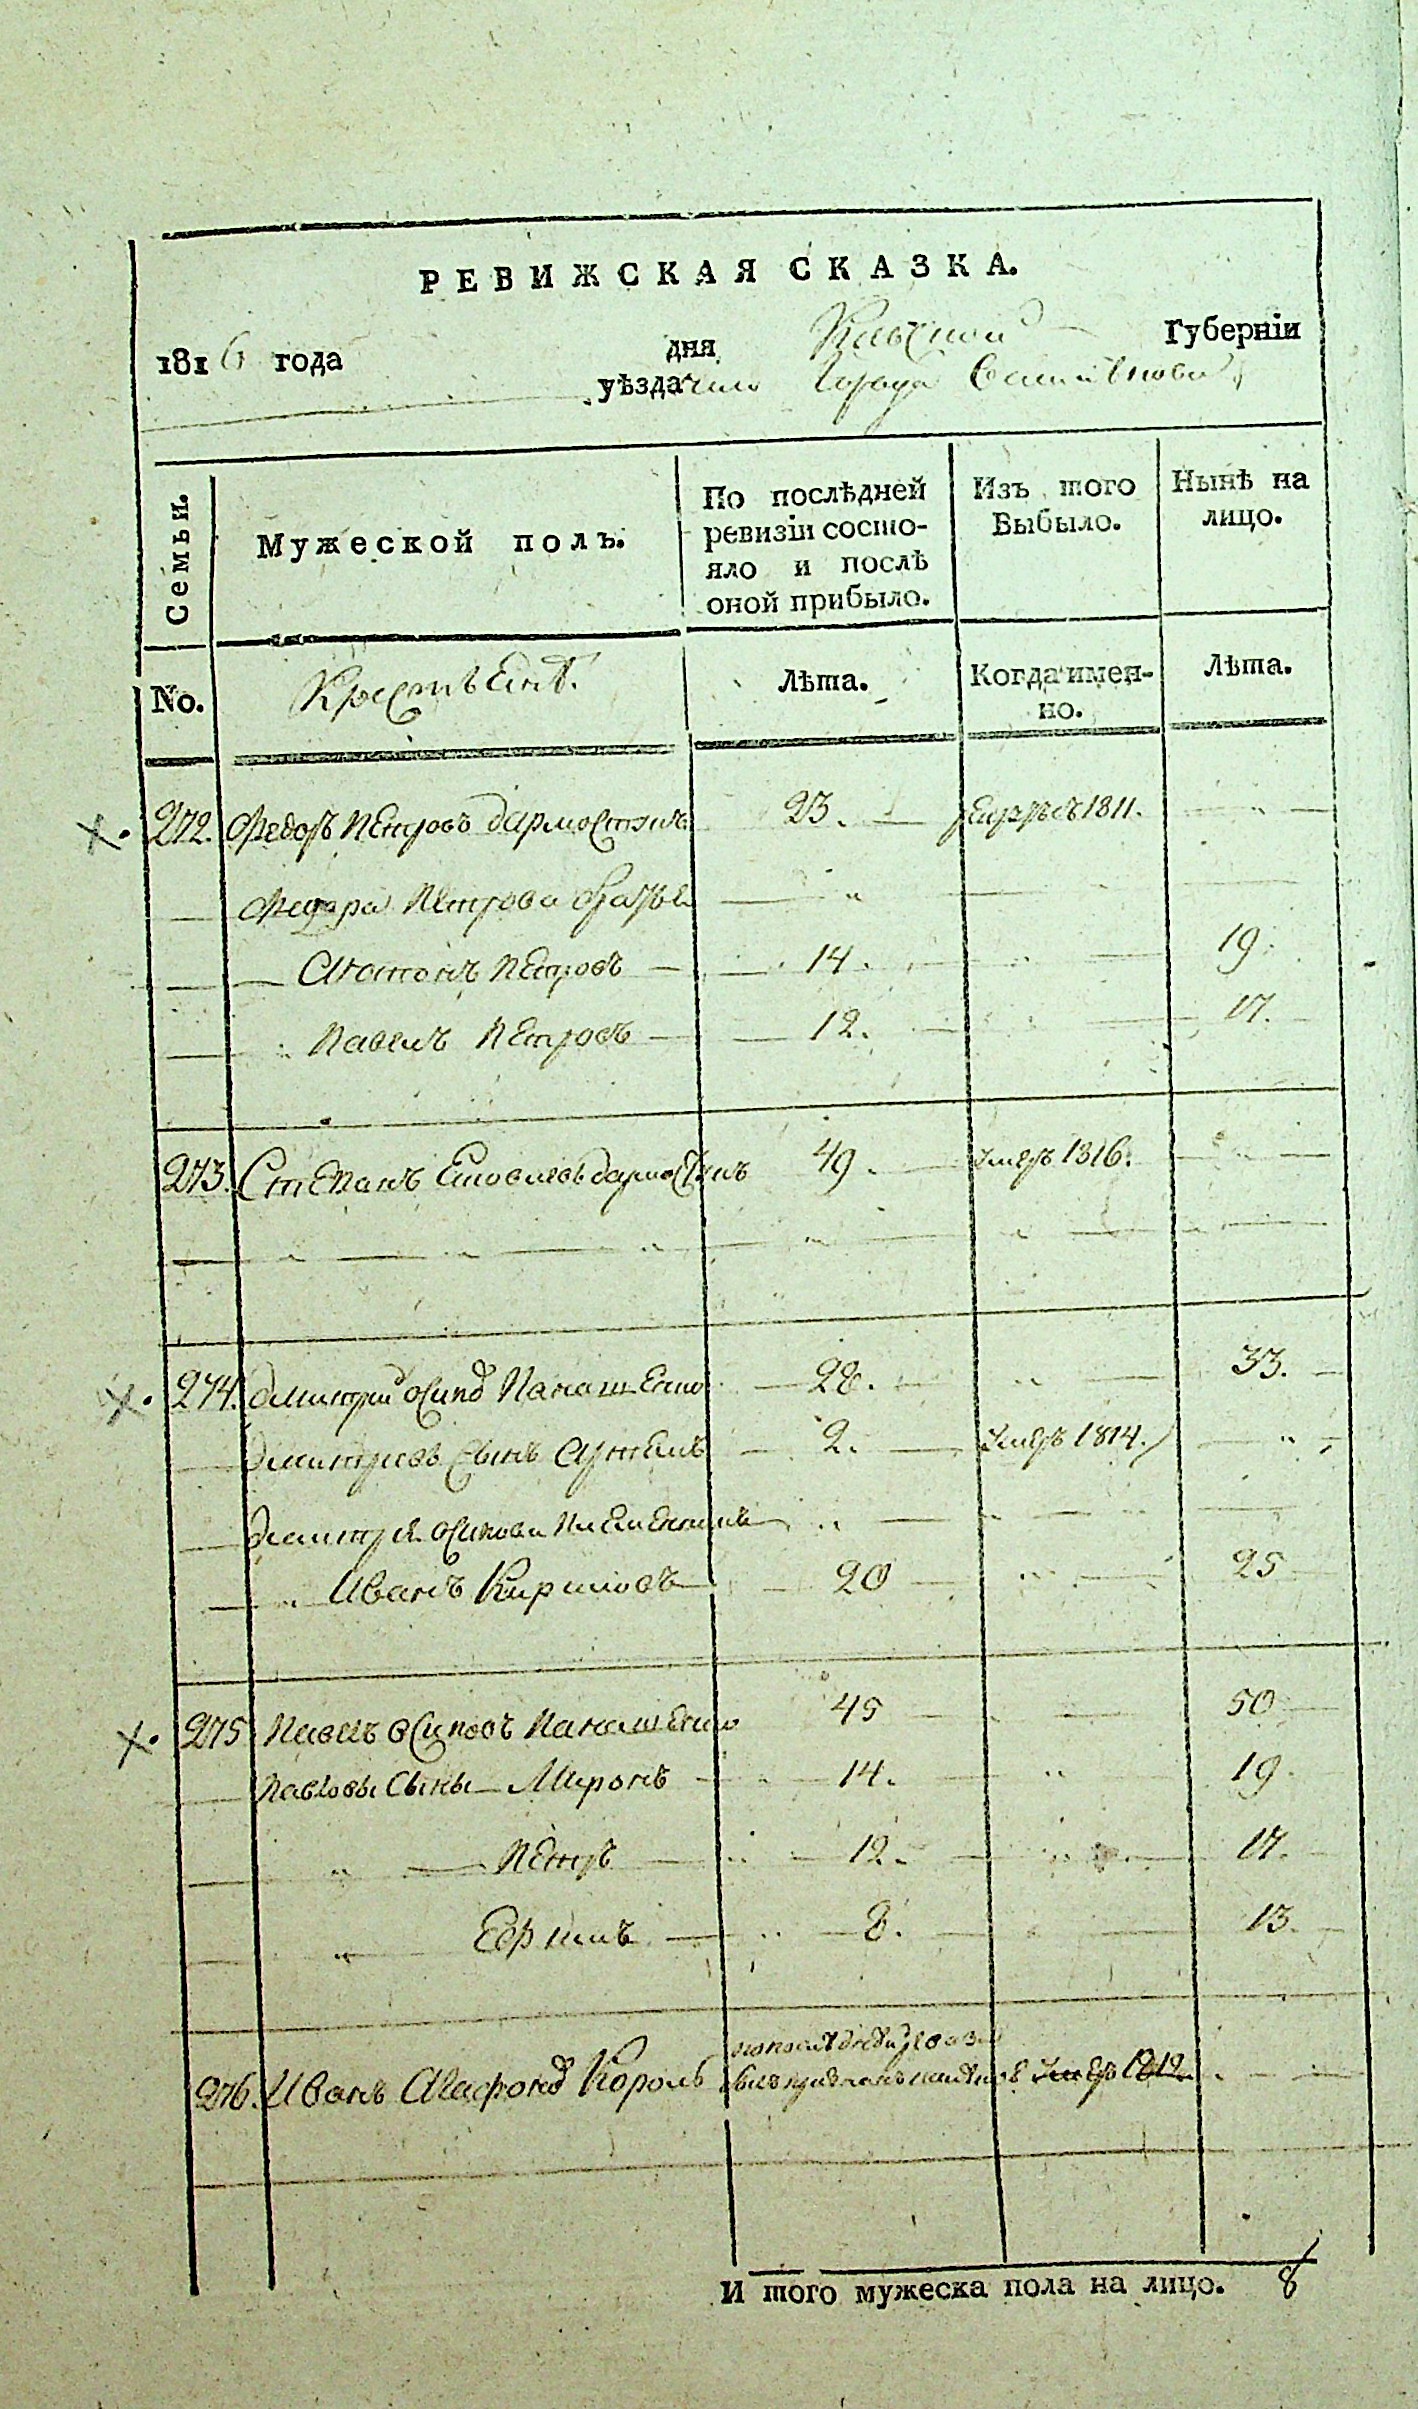 РЕВИЖСКАЯ СКАЗКА.
1816 года дня Киевской Губерніи
уѣзда города
Семьи.
Мужеской полъ.
По послѣдней ревизіи состо-
яло и послѣ оной прибыло.
Изъ того Выбыло.
Нынѣ на лицо.
No.
Лѣта.
Когда имен-
но.
Лѣта.
272. Федоръ Петровъ 23. 1811.
Федора Петрова братья
Антонъ Петровъ 14. 19.
Павелъ Петровъ 12. 17.
273. Степанъ Яковлевъ 49. умеръ 1816.
274. Дмитрий Осипов Панашенко 28. 33.
Дмитриевъ сынъ Артемъ 2. умеръ 1814.
Дмитрия Осипова племенникъ
Иванъ Кириловъ 20 25
275 Павелъ Осиповъ Панашенко 45 50
Павловы сыны Миронъ 14. 19.
Петръ 12. 17.
Ефимъ 8. 13.
276. Иванъ Агафонов Король умеръ 1812
И того мужеска пола на лицо. 8